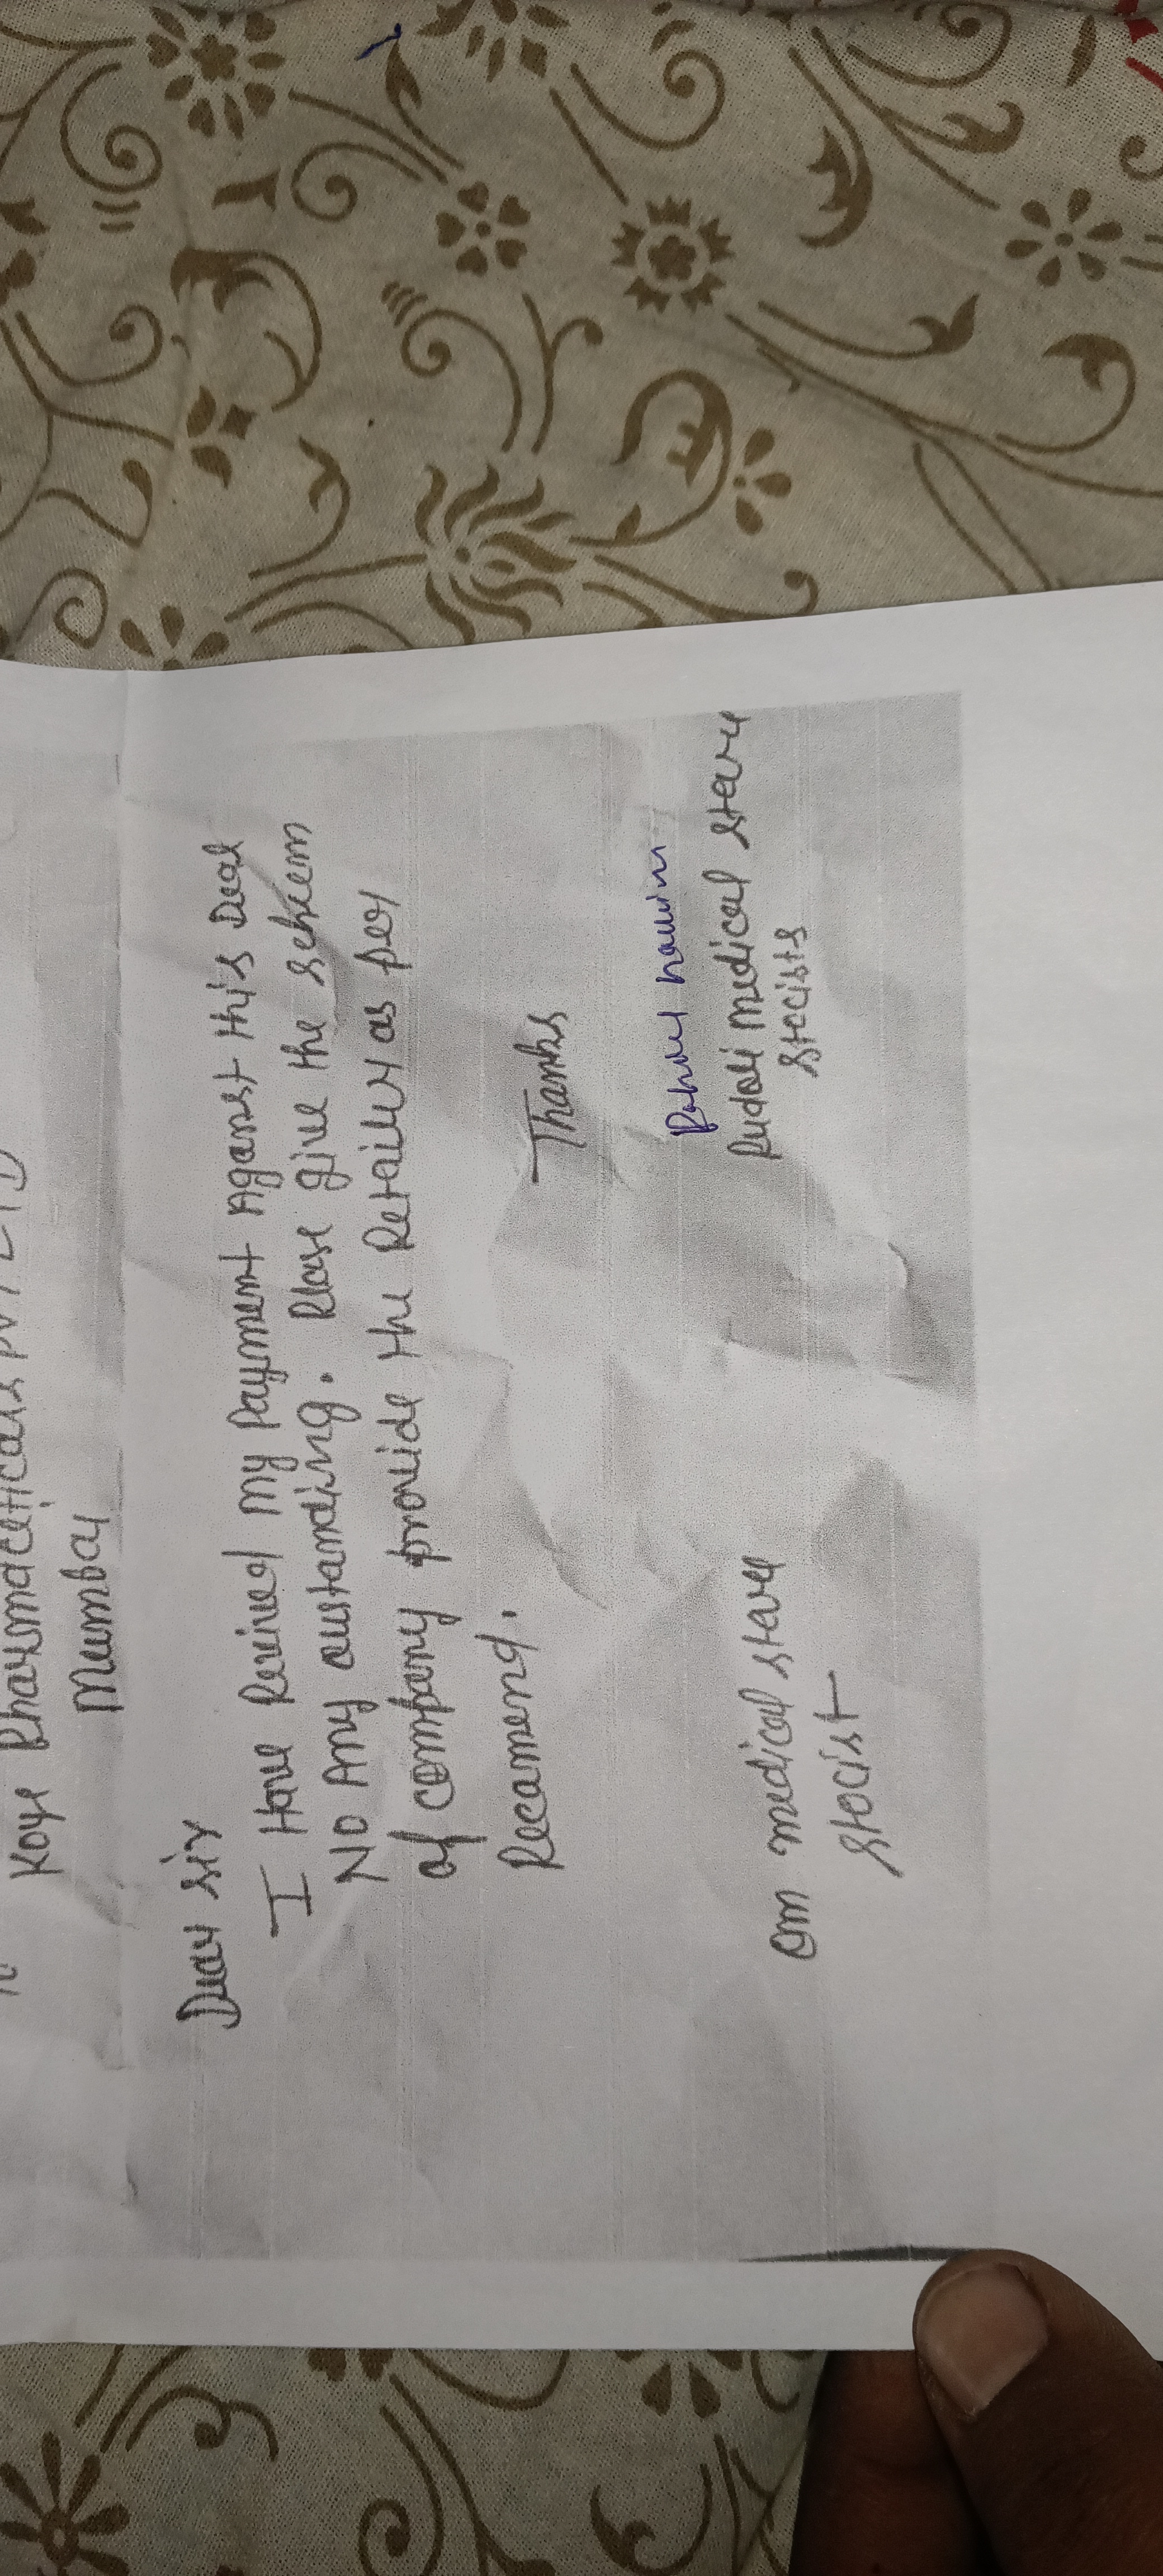 Koye Pharmaceticals PVT LTD
Mumbai
Dear Sir
I Have Recived my Payment Aganst this Deal
No Any oustanding. Please give the scheem
of company provide the Retailer as per
Recamend.
Thanks
Rudoli medical store
stocists
om medical store
stocist